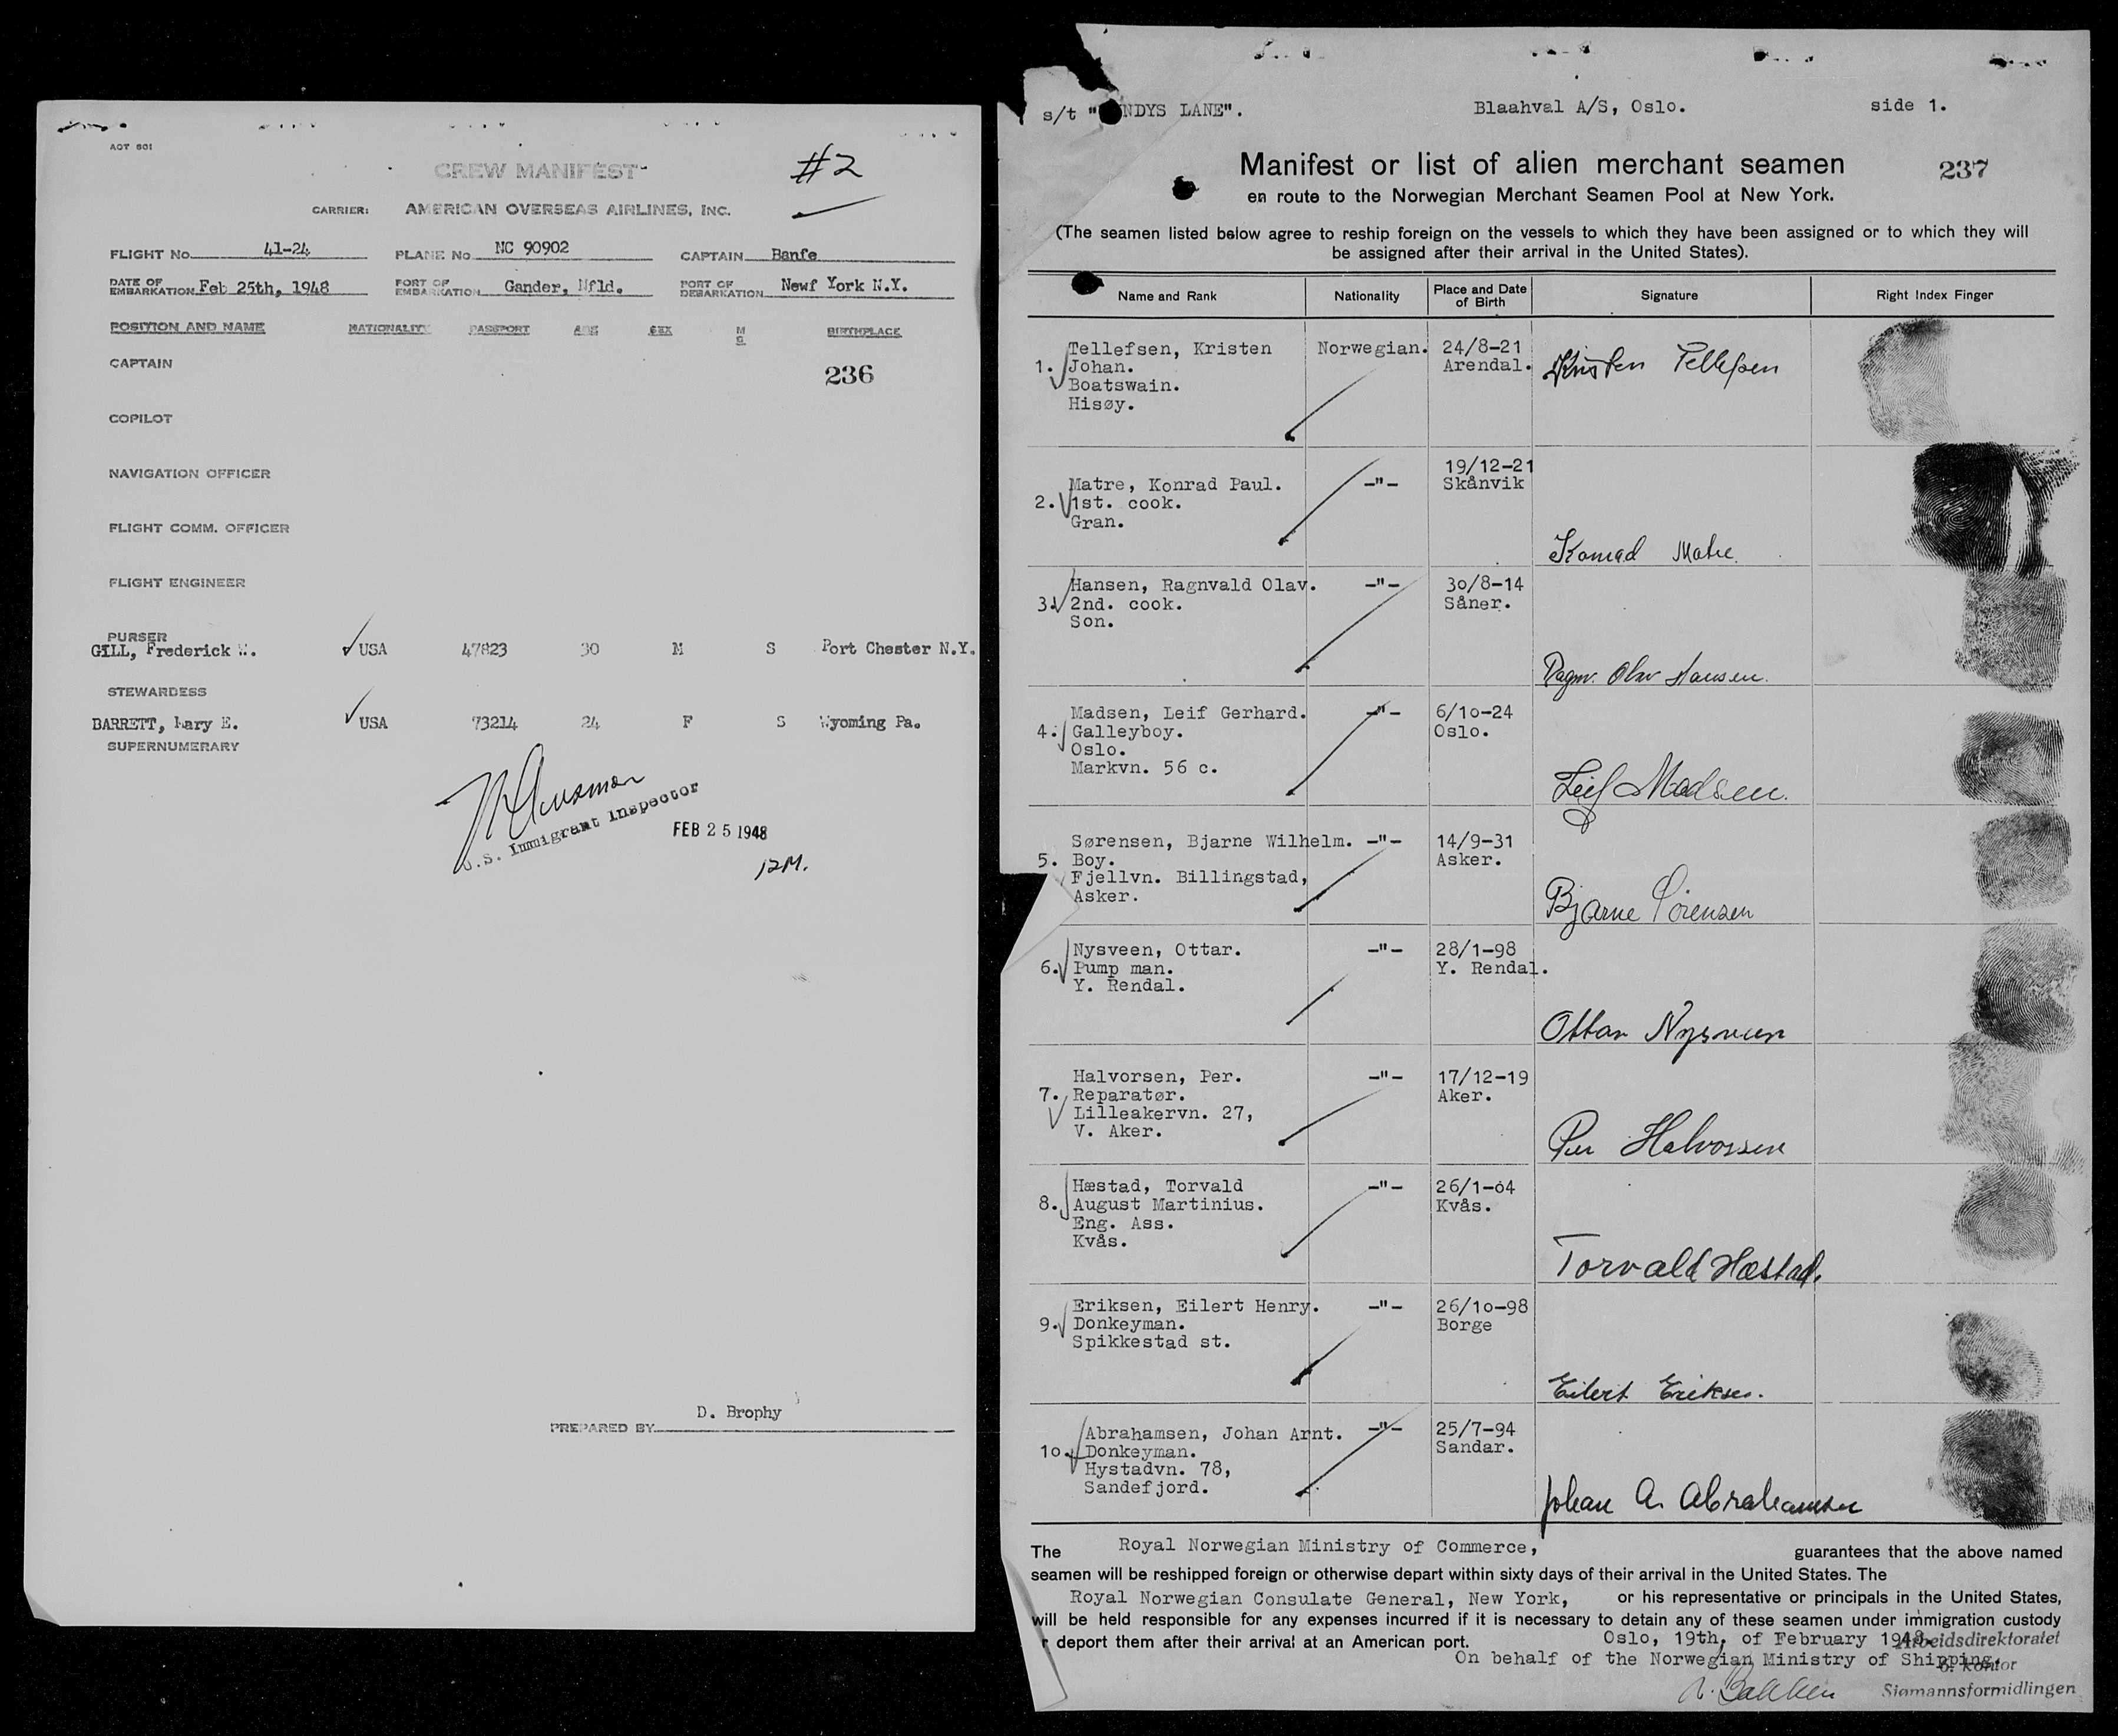 AOT 801
CREW MANIFEST
#2
CARRIER: AMERICAN OVERSEAS AIRLINES, INC.
FLIGHT No. 41-24 PLANE No. NC 90902 CAPTAIN Banfe
DATE OF EMBARKATION Feb 25th, 1948 PORT OF EMBARKATION Gander, Nfld. PORT OF DEBARKATION Newf York N.Y.
POSITION AND NAME NATIONALITY PASSPORT AGE SEX M S BIRTHPLACE
CAPTAIN
236
COPILOT
NAVIGATION OFFICER
FLIGHT COMM. OFFICER
FLIGHT ENGINEER
PURSER
GILL, Frederick W. USA 47823 30 M S Port Chester N.Y.
STEWARDESS
BARRETT, Mary E. USA 73214 24 F S Wyoming Pa.
SUPERNUMERARY
U.S. Immigrant Inspector
FEB 25 1948
12M.
D. Brophy
PREPARED BY
s/t "NDYS LANE". Blaahval A/S, Oslo. side 1.
Manifest or list of alien merchant seamen
237
en route to the Norwegian Merchant Seamen Pool at New York.
(The seamen listed below agree to reship foreign on the vessels to which they have been assigned or to which they will
be assigned after their arrival in the United States).
Name and Rank Nationality Place and Date of Birth Signature Right Index Finger
Tellefsen, Kristen Norwegian. 24/8-21
1. Johan. Arendal. Kristen Tellefsen
Boatswain.
Hisøy.
19/12-21
Matre, Konrad Paul. -"- Skånvik
2. 1st. cook.
Gran.
Konrad Matre
Hansen, Ragnvald Olav. -"- 30/8-14
3. 2nd. cook. Såner.
Son.
Ragnv. Olav Hansen.
Madsen, Leif Gerhard. -"- 6/10-24
4. Galleyboy. Oslo.
Oslo.
Markvn. 56 c.
Leif Madsen.
Sørensen, Bjarne Wilhelm. -"- 14/9-31
5. Boy. Asker.
Fjellvn. Billingstad,
Asker.
Bjarne Sørensen
Nysveen, Ottar. -"- 28/1-98
6. Pump man. Y. Rendal.
Y. Rendal.
Ottar Nysveen
Halvorsen, Per. -"- 17/12-19
7. Reparatør. Aker.
Lilleakervn. 27,
V. Aker.
Per Halvorsen
Hæstad, Torvald -"- 26/1-04
8. August Martinius. Kvås.
Eng. Ass.
Kvås.
Torvald Hæstad.
Eriksen, Eilert Henry. -"- 26/10-98
9. Donkeyman. Borge
Spikkestad st.
Eilert Eriksen.
Abrahamsen, Johan Arnt. -"- 25/7-94
10. Donkeyman. Sandar.
Hystadvn. 78,
Sandefjord.
Johan A. Abrahamsen
The Royal Norwegian Ministry of Commerce, guarantees that the above named
seamen will be reshipped foreign or otherwise depart within sixty days of their arrival in the United States. The
Royal Norwegian Consulate General, New York, or his representative or principals in the United States,
will be held responsible for any expenses incurred if it is necessary to detain any of these seamen under immigration custody
r deport them after their arrival at an American port. Oslo, 19th. of February 1948.
Arbeidsdirektoratet
On behalf of the Norwegian Ministry of Shipping.
6. kontor
Sjømannsformidlingen